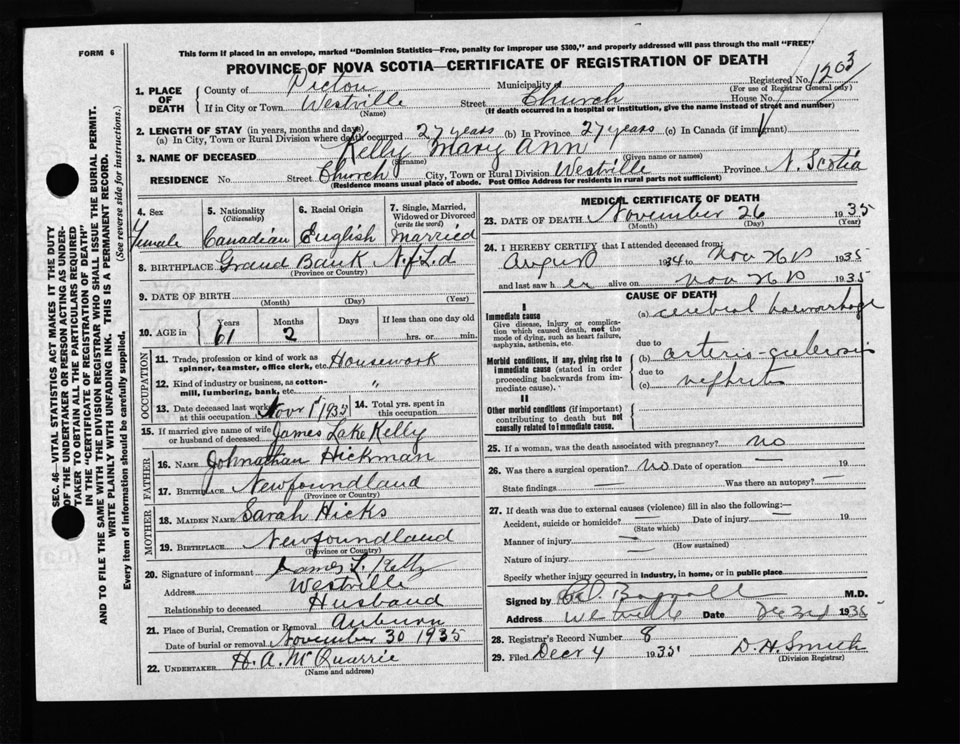 FORM 6
This form if placed in an envelope, marked "Dominion Statistics—Free, penalty for improper use $300," and properly addressed will pass through the mail "FREE"
PROVINCE OF NOVA SCOTIA—CERTIFICATE OF REGISTRATION OF DEATH
Registered No. 1203
(For use of Registrar General only)
1. PLACE OF DEATH
County of Pictou Municipality of
If in City or Town Westville Street Church House No.
(Name) (If death occurred in a hospital or institution, give the name instead of street and number)
2. LENGTH OF STAY (in years, months and days)
(a) In City, Town or Rural Division where death occurred 27 years (b) In Province 27 years (c) In Canada (if immigrant)
3. NAME OF DECEASED Kelly Mary Ann
(Surname) (Given name or names)
RESIDENCE No. Street Church City, Town or Rural Division Westville Province N. Scotia
(Residence means usual place of abode. Post Office Address for residents in rural parts not sufficient)
4. Sex
Female
5. Nationality
(Citizenship)
Canadian
6. Racial Origin
English
7. Single, Married, Widowed or Divorced
(write the word)
Married
8. BIRTHPLACE Grand Bank N.f.L.d
(Province or Country)
9. DATE OF BIRTH
(Month) (Day) (Year)
10. AGE in
Years Months Days If less than one day
61 2 hrs. or min.
OCCUPATION
11. Trade, profession or kind of work as spinner, teamster, office clerk, etc. Housework
12. Kind of industry or business, as cotton-mill, lumbering, bank, etc. "
13. Date deceased last worked at this occupation Novr 1st
14. Total yrs. spent in this occupation
15. If married give name of wife or husband of deceased James Lake Kelly
FATHER
16. NAME Johnathan Hickman
17. BIRTHPLACE Newfoundland
(Province or Country)
MOTHER
18. MAIDEN NAME Sarah Hicks
19. BIRTHPLACE Newfoundland
(Province or Country)
20. Signature of informant James L. Kelly
Address Westville
Relationship to deceased Husband
21. Place of Burial, Cremation or Removal Auburn
Date of burial or removal November 30 1935
22. UNDERTAKER H. A. McQuarrie
(Name and address)
MEDICAL CERTIFICATE OF DEATH
23. DATE OF DEATH November 26 1935
(Month) (Day) (Year)
24. I HEREBY CERTIFY that I attended deceased from:
August 1934 to Nov 26th 1935
and last saw her alive on Nov 26th 1935
CAUSE OF DEATH
I
Immediate cause
Give disease, injury or complication which caused death, not the mode of dying, such as heart failure, asphyxia, asthenia, etc.
(a) cerebral haemorrhage
due to
Morbid conditions, if any, giving rise to immediate cause (stated in order proceeding backwards from immediate cause).
(b) arterio-sclerosis
due to
(c) nephritis
II
Other morbid conditions (if important) contributing to death but not causally related to immediate cause.
25. If a woman, was the death associated with pregnancy? no
26. Was there a surgical operation? no Date of operation — 19
State findings — Was there an autopsy? —
27. If death was due to external causes (violence) fill in also the following:—
Accident, suicide or homicide? — Date of injury — 19
(State which)
Manner of injury —
(How sustained)
Nature of injury —
Specify whether injury occurred in industry, in home, or in public place
Signed by M.D.
Address Westville Date Dec 3rd 1935
28. Registrar's Record Number 8
29. Filed Decr 4 1935 D. H. Smith
(Division Registrar)
SEC. 46—VITAL STATISTICS ACT MAKES IT THE DUTY OF THE UNDERTAKER OR PERSON ACTING AS UNDERTAKER TO OBTAIN ALL THE PARTICULARS REQUIRED IN THE "CERTIFICATE OF REGISTRATION OF DEATH" AND TO FILE THE SAME WITH THE DIVISION REGISTRAR WHO SHALL ISSUE THE BURIAL PERMIT.
WRITE PLAINLY WITH UNFADING INK. THIS IS A PERMANENT RECORD.
Every item of information should be carefully supplied. (See reverse side for instructions.)